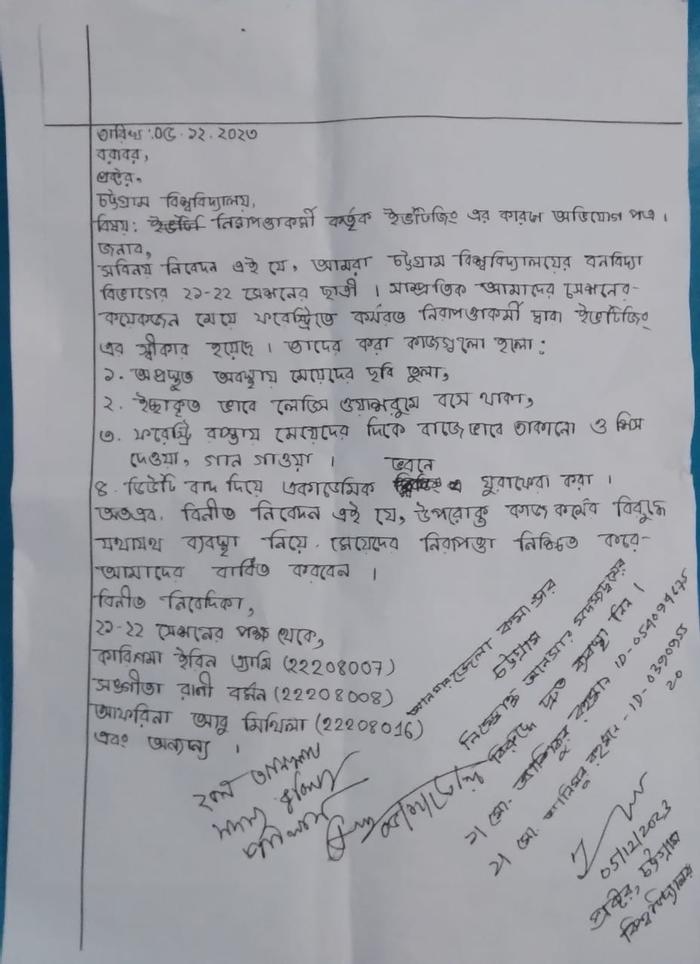 তারিখ : ০৫.১২.২০২৩
বরাবর,
প্রক্টর,
চট্টগ্রাম বিশ্ববিদ্যালয়,
বিষয়: নিরাপত্তাকর্মী কর্তৃক ইভটিজিং এর কারণে অভিযোগ পত্র।
জনাব,
সবিনয় নিবেদন এই যে, আমরা চট্টগ্রাম বিশ্ববিদ্যালয়ের বনবিদ্যা
বিভাগের ২১-২২ সেশনের ছাত্রী। সাম্প্রতিক আমাদের সেশনের
কয়েকজন মেয়ে ফরেস্ট্রিতে কর্মরত নিরাপত্তাকর্মী দ্বারা ইভটিজিং
এর স্বীকার হয়েছে। তাদের করা কাজগুলো হলো:
১. অপ্রস্তুত অবস্থায় মেয়েদের ছবি তুলা,
২. ইচ্ছাকৃত ভাবে লেডিস ওয়াশরুমে বসে থাকা,
৩. ফরেস্ট্রি রাস্তায় মেয়েদের দিকে বাজেভাবে তাকানো ও শিস
দেওয়া, গান গাওয়া।
৪. ডিউটি বাদ দিয়ে একাডেমিক ভবনে ঘুরাফেরা করা।
অতএব, বিনীত নিবেদন এই যে, উপরোক্ত কাজ কর্মের বিরুদ্ধে
যথাযথ ব্যবস্থা নিয়ে মেয়েদের নিরাপত্তা নিশ্চিত করে
আমাদের বাধিত করবেন।
বিনীত নিবেদিকা,
২১-২২ সেশনের পক্ষ থেকে,
কারিশমা ইরিন এ্যামি (22208007)
সঙ্গীতা রাণী বর্মন (22208008)
আফরিনা আবু মিথিলা (22208016)
এবং অন্যান্য।
জেলা কমান্ড্যান্ট
চট্টগ্রাম
নিম্নোক্ত আনসার সদস্যদ্বয়ের
বিরুদ্ধে দ্রুত ব্যবস্থা নিন।
১। মো.
২। মো. আনিসুর রহমান - ID-
05/12/2023
প্রক্টর, চট্টগ্রাম
বিশ্ববিদ্যালয়